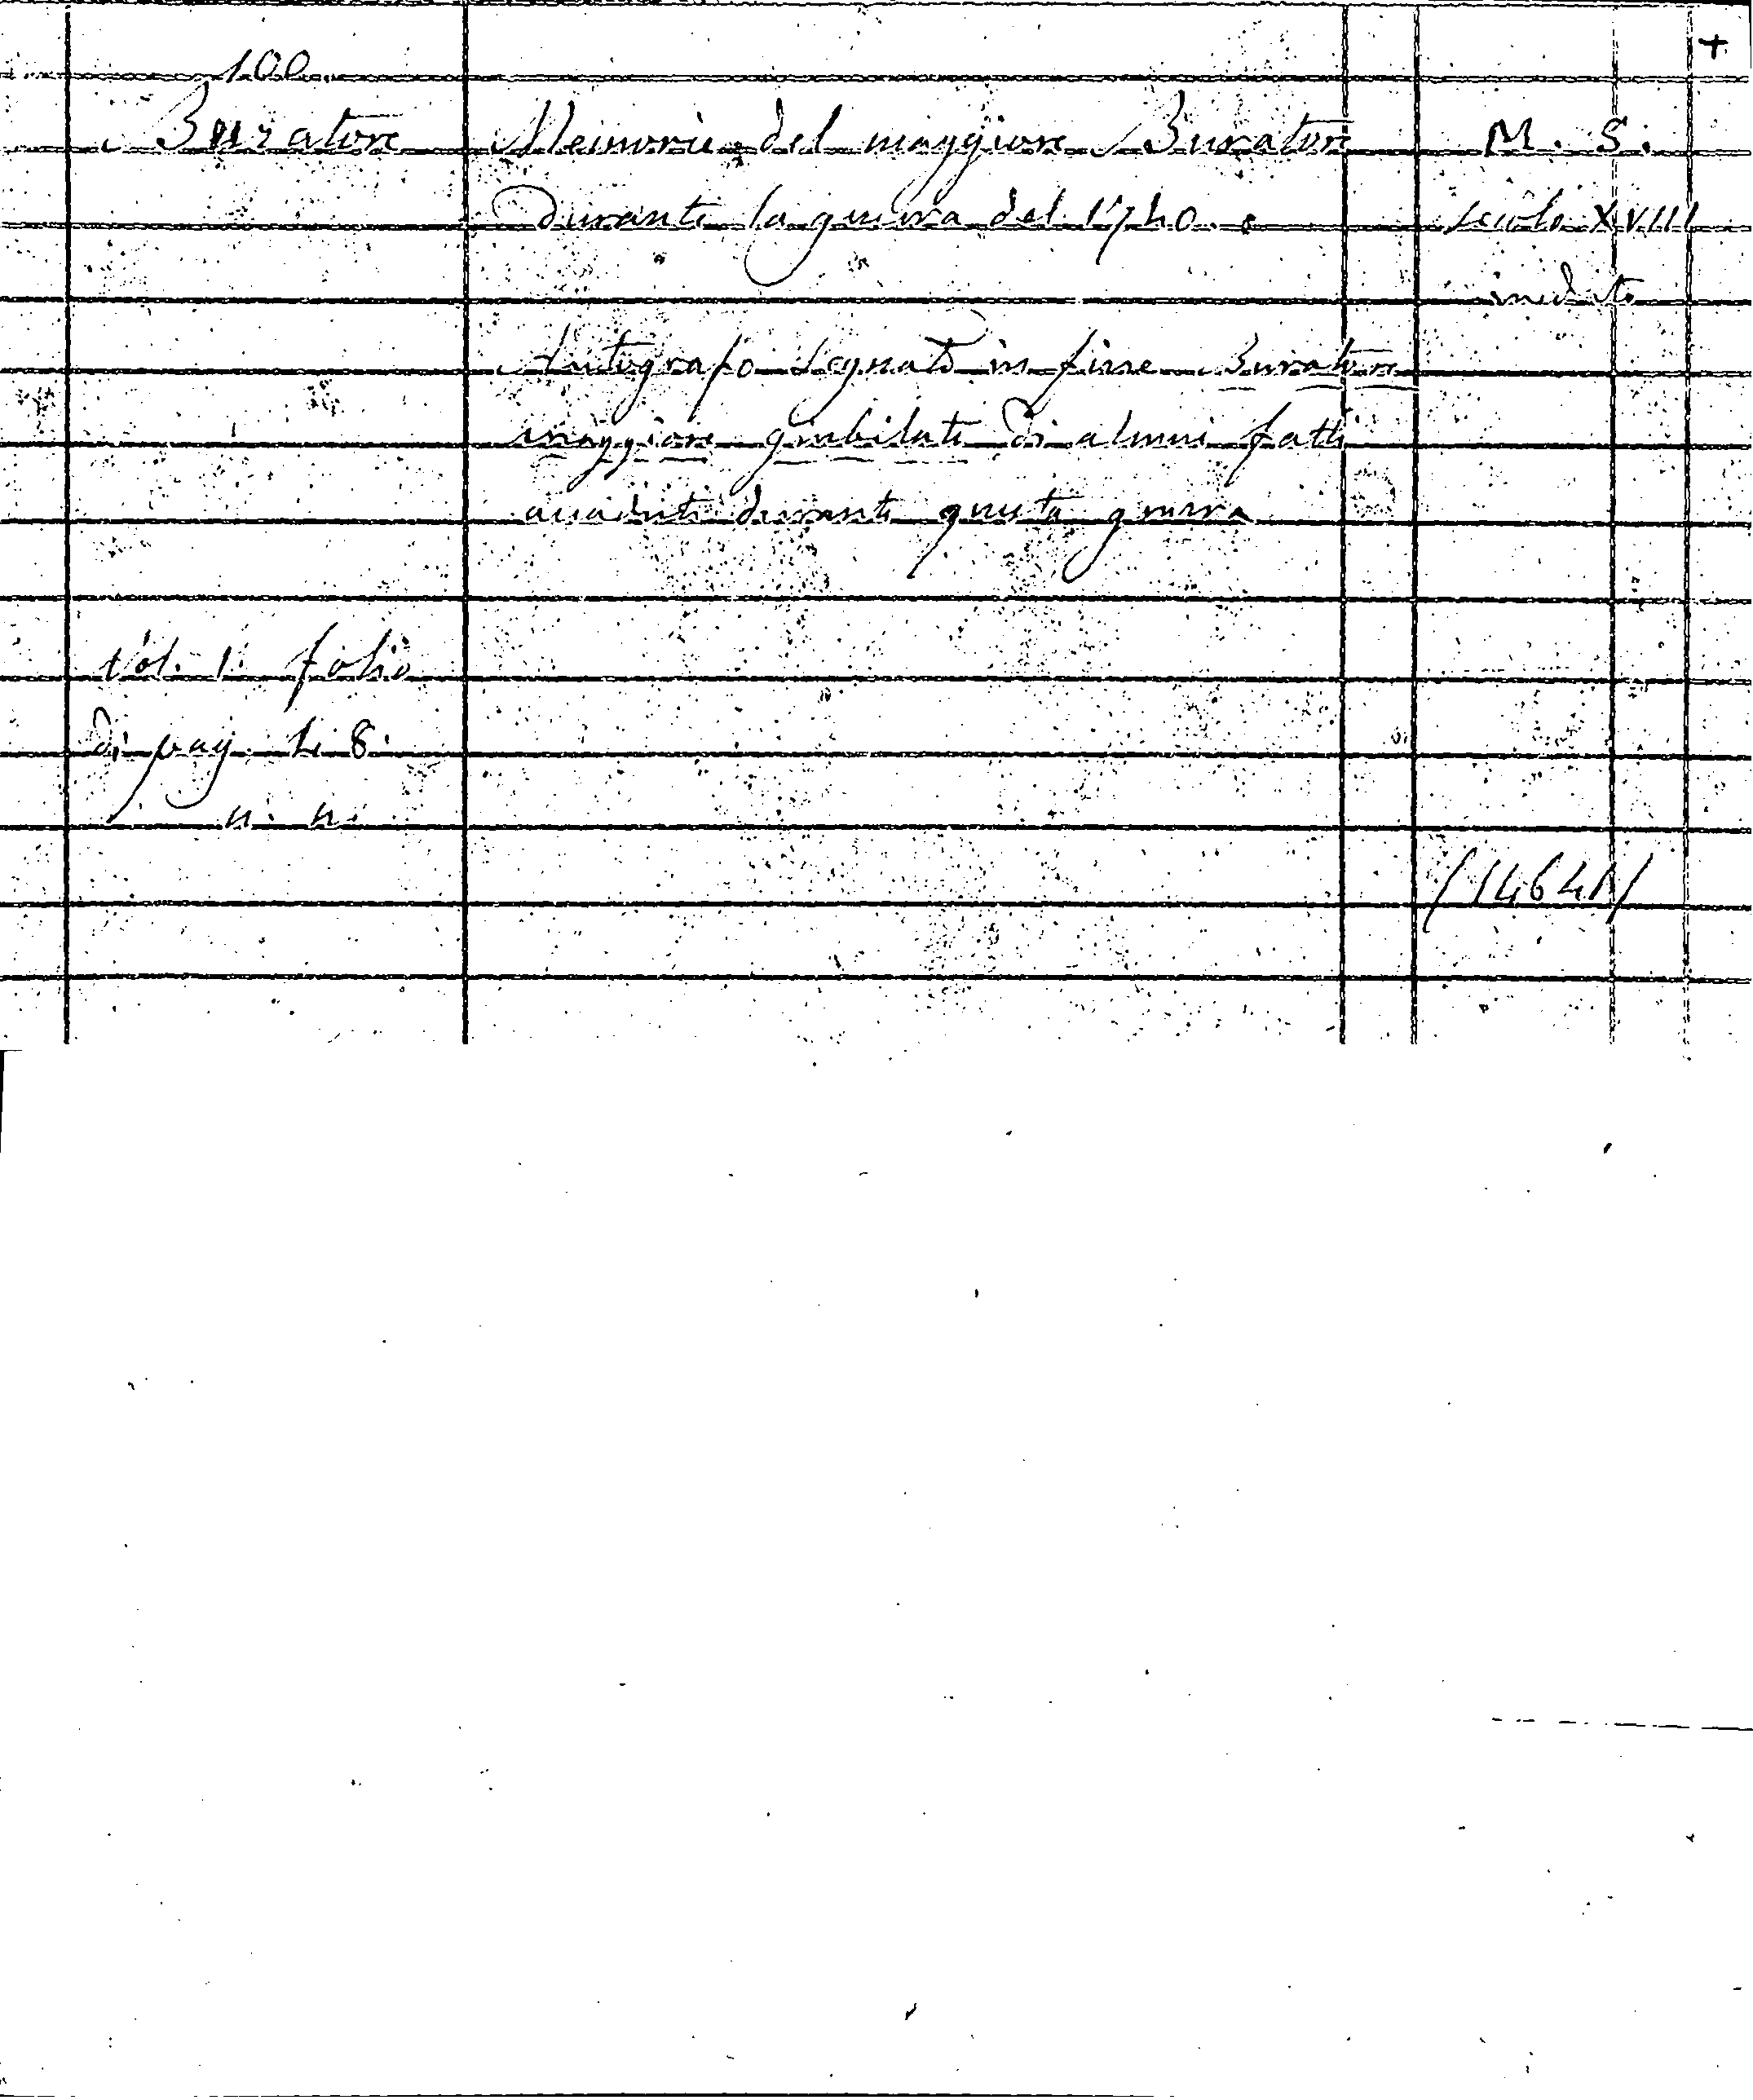 +
100.
Buratore Memorie del maggiore Buratore M. S.
durante la guerra del 1740. secolo XVIII
inedito
Autografo segnato in fine Buratore
maggiore giubilato di alcuni fatti
accaduti durante questa guerra
Vol. 1. folio
di pag. 48.
n. n.